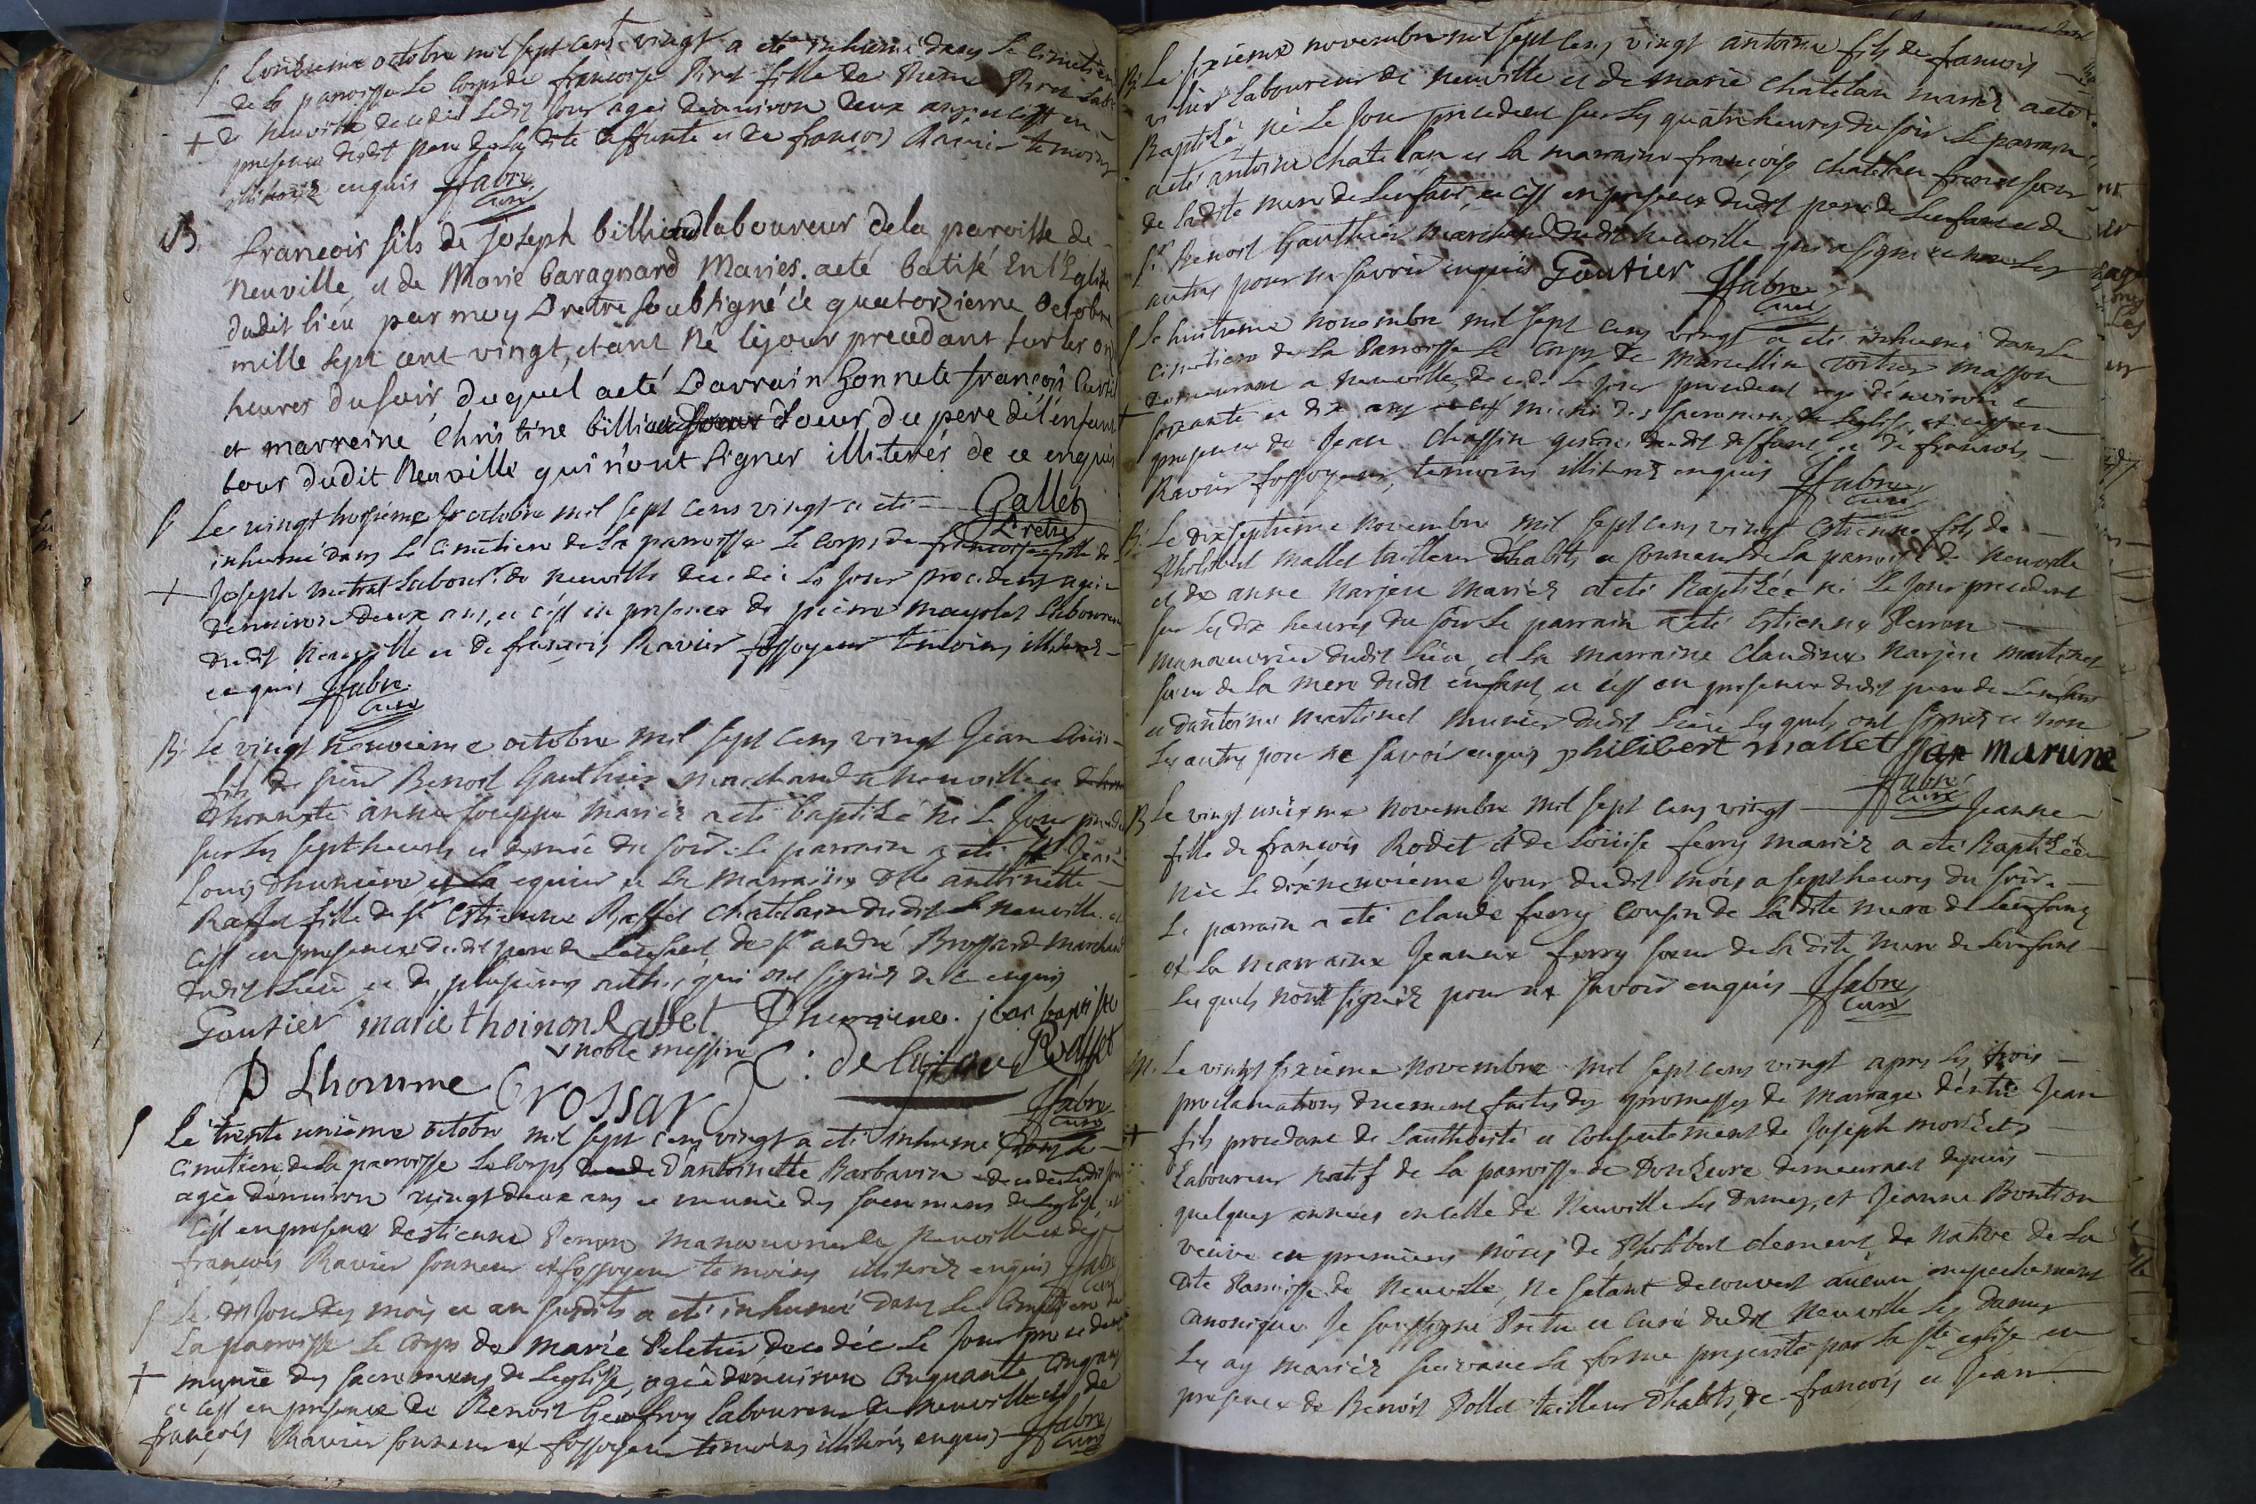 L'onzieme octobre mil sept cens vingt a eté inhumé dans le cimetiere
de la parroisse le corps de francoise Piret fille de Pierre Piret labr
de neuville decedée ledit jour agée d'environ deux ans, et c'est en
presence dudit pere de la dite deffunte et de françois Ravier temoins
illiterés enquis ffabre
curé
B. francois fils de Joseph billiond laboureur de la paroisse de
Neuville, et de Marie baragnard Mariés. a eté batisé En l'Eglise
dudit lieu par moy Pretre soubsigné ce quatorzieme Octobre
mille sept cent vingt, etant Né le jour precedant sur les on
heures du soir duquel a eté Parrain honnete francois
et marreine Christine billiond soeur du pere de l'enfant
tous dudit Neuville qui n'ont signer illiterés de ce enquis
Gallet
Pretre
S Le vingt troisieme octobre mil sept cens vingt a eté
inhumé dans le cimetiere de la parroisse le corps de francoise fille de
Joseph mitrat labour. de neuville decedée le jour precedent agée
d'environ deux ans, et c'est en presence de pierre mayolet laboureur
dudit Neuville et de francois Ravier fossoyeur temoins illiterés
enquis ffabre
curé
B. Le vingt neuvieme octobre mil sept cens vingt Jean Louis
fils de sieur Benoit Gauthier marchand a neuville et
d'honnete anne mariés a eté baptisé né le jour preced
sur les sept heures et demie du soir. Le parrain a eté Jean
Louis d'humiere ecuier et la marraine Dlle antoinette
Raffet fille de sr Estienne Raffet chatelain dudit neuville et
c'est en presence dudit pere de L'enfant, de sr andré Brossard marchand
dudit lieu, et de plusieurs autres, qui ont signés de ce enquis
Gautier marie thoinon Raffet Dhumiere. jean baptiste
noble messire Raffet
D Lhomme Brossard
ffabre
curé
S Le trente unieme octobre mil sept cens vingt a eté inhumé dans le
cimetiere de la parroisse le corps d'antoinette Barbarin decedée ledit jour
agée d'environ vingt deux ans et munie des sacremens de l'eglise, et
c'est en presence d'estienne Perron manoeuvrier de Neuville et de
francois Ravier sonneur et fossoyeur temoins illiterés enquis ffabre
curé
S Le dit jour des mois et an susdits a eté inhumé dans le cimetiere de
La parroisse le corps de Marie Peletier decedée le jour precedent
munie des sacremens de l'eglise, agée d'environ cinquante cinq ans
et c'est en presence de Benoit Geoffroy laboureur de neuville et de
françois Ravier sonneur et fossoyeur temoins illiterés enquis ffabre
curé
B. Le sixieme novembre mil sept cens vingt antoine fils de francois
vilier laboureur de neuville et de marie chatelan mariés a eté
Baptisé né le jour precedent sur les quatre heures du soir. Le parrain
a eté antoine chatelan et la marraine françoise chatelan frere et soeur
de ladite mere de l'enfant, et c'est en presence dudit pere de l'enfant et de
sr. Benoit Gauthier marchand dudit neuville qui a signé et non les
autres pour ne savoir enquis Gautier ffabre
curé
S Le huitieme novembre mil sept cens vingt a eté inhumé dans le
cimetiere de la Parroisse le corps de marcellin masson
demeurant a neuville, decedé le jour precedent agé d'environ
soixante et dix ans et muni des sacremens de l'eglise, et c'est en
presence de Jean Chaffin gendre dudit deffunt et de francois
Ravier fossoyeur, temoins illiterés enquis ffabre
curé
B. Le dix septieme Novembre mil sept cens vingt Estienne fils de
Philibert Mallet tailleur d'habits et sonneur de la parroisse de Neuville
et de anne Narjeu mariés a eté Baptisé né Le jour precedent
sur les dix heures du soir Le parrain a eté Estienne Perron
manoeuvrier dudit lieu, et la marraine Claudine Narjeu
soeur de la mere dudit enfant, et c'est en presence dudit pere de L'enfant
et d'antoine martinet munier dudit lieu lesquels ont signés et non
les autres pour ne savoir enquis philibert mallet marune
ffabre
curé
B Le vingt unieme Novembre mil sept cens vingt Jeanne
fille de françois Rodet et de Louise ferry mariés a eté Baptisée
née Le dixneuvieme jour dudit mois a sept heures du soir.
Le parrain a eté claude ferry cousin de la dite mere de l'enfant
et la marraine Jeanne ferry soeur de la dite mere de l'enfant
lesquels n'ont signés pour ne savoir enquis ffabre
curé
M. Le vingt sixieme Novembre mil sept cens vingt apres les trois
proclamations duement faites des promesses de mariage d'entre Jean
fils procedant de l'authorité et consentement de Joseph
Laboureur natif de la parroisse de Donsure demeurant depuis
quelques années en celle de Neuville les Dames, et Jeanne Bontron
veuve en premieres nôces de Philibert clement de native de la
dite Parroisse de Neuville, ne s'etant decouvert aucun empechement
canonique Je soussigné Pretre et curé dudit Neuville les Dames
les ay mariés suivant la forme prescrite par la ste eglise en
presence de Benoit Pollet tailleur d'habits, de françois et Jean